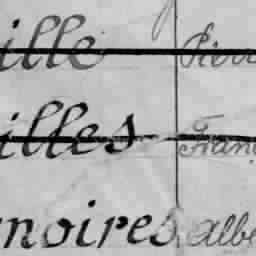 ille Pierre
illes Franç
noires Albe